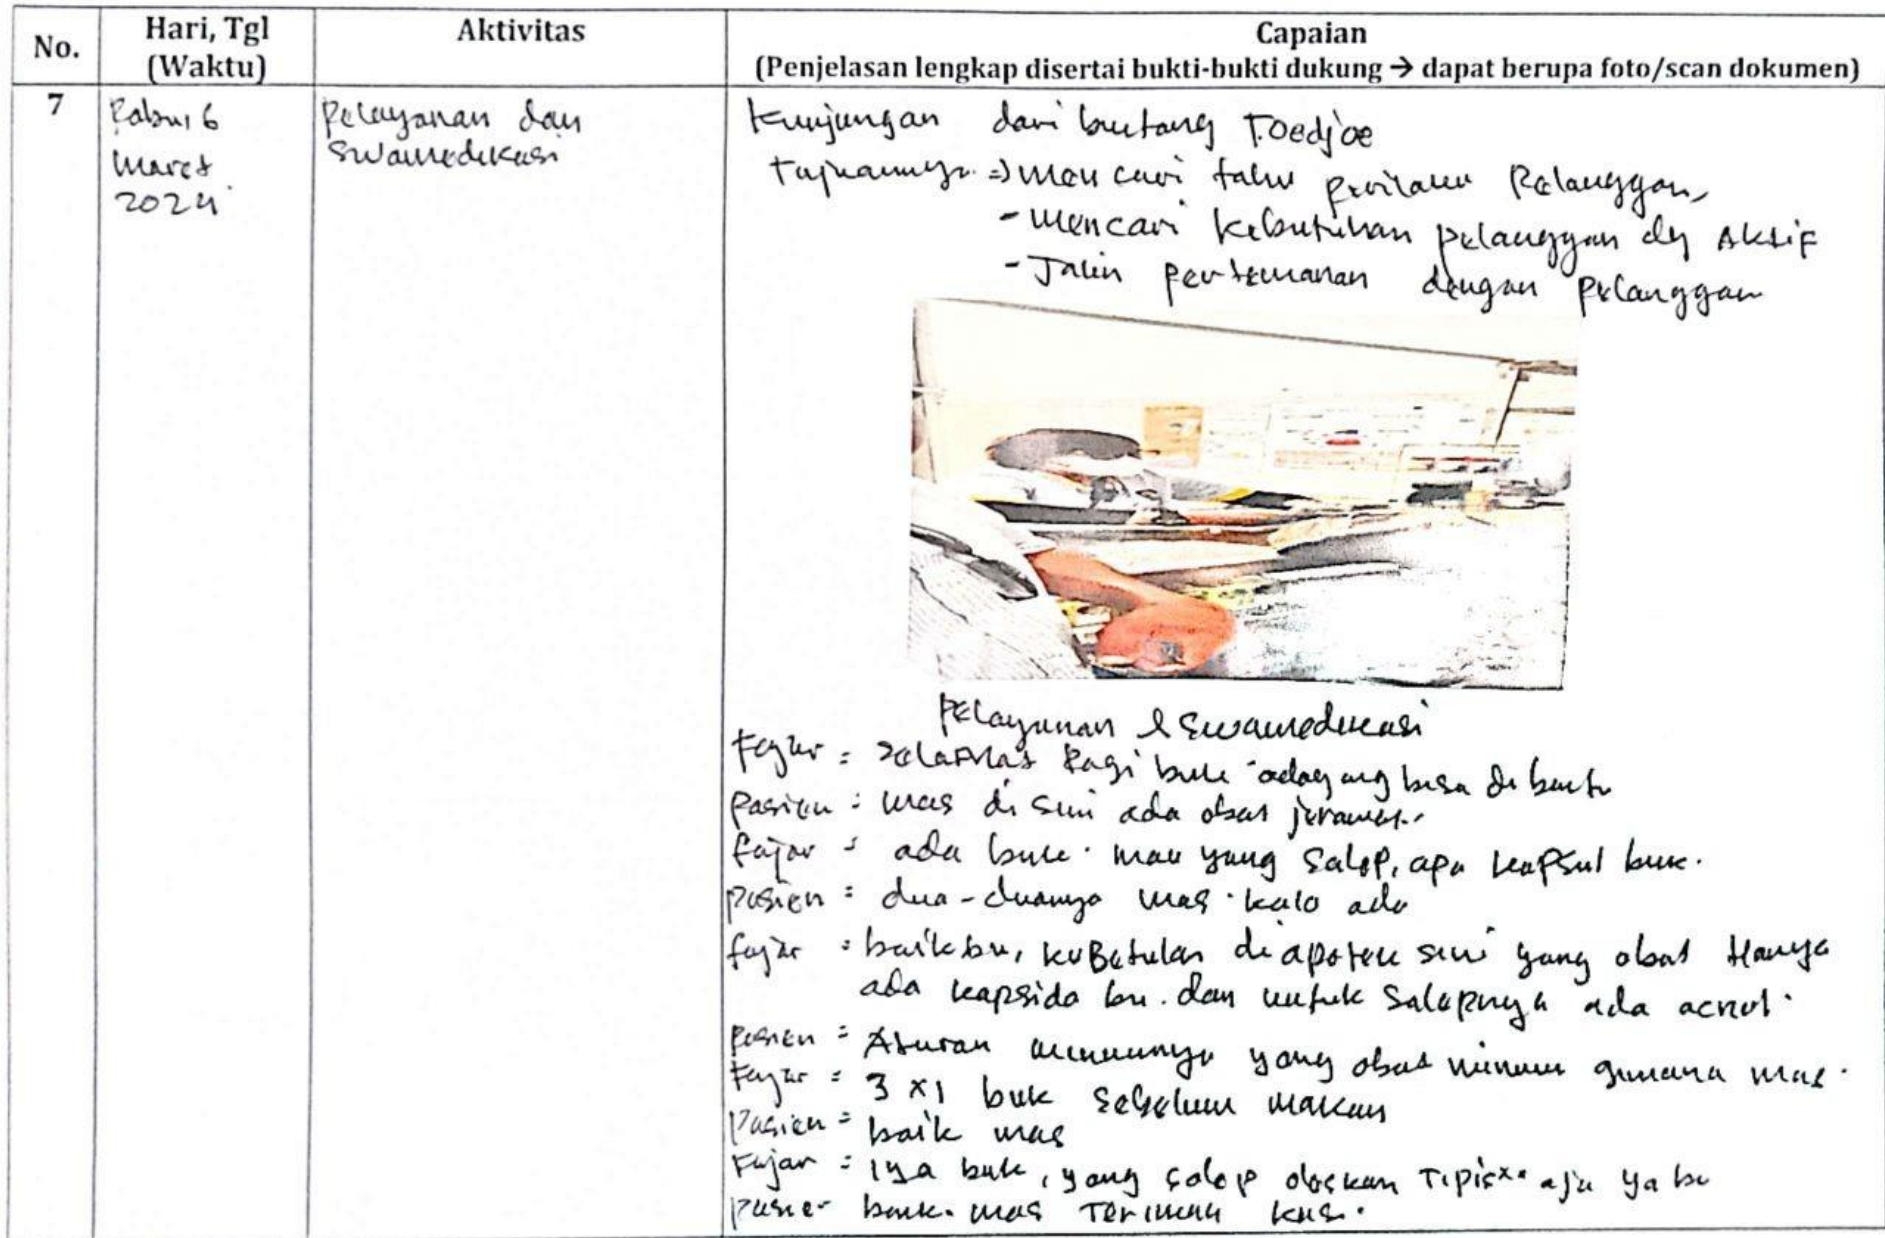 No.
Hari, Tgl
(Waktu)
Aktivitas
Capaian
(Penjelasan lengkap disertai bukti-bukti dukung → dapat berupa foto/scan dokumen)
7
Rabu, 6
Maret
2024
Pelayanan dan
Swamedikasi
Kunjungan dari bintang Toedjoe
Tujuannya => mencari tahu perilaku Pelanggan,
- mencari kebutuhan pelanggan dg Aktif
- Jalin pertemanan dengan pelanggan
Pelayanan & Swamedikasi
Fajar = selamat Pagi buk ada yang bisa di bantu
Pasien : mas di sini ada obat jerawat.
fajar = ada buk. mau yang salep, apa kapsul buk.
Pasien : dua-duanya mas. kalo ada
fajar : baik bu, keBetulan di apotek sini yang obat Hanya
ada kapsida bu. dan untuk Salepnya ada acnol.
Pasien = Aturan minumnya yang obat minum gimana mas.
Fajar = 3 x 1 buk sebelum makan
Pasien = baik mas
Fajar : Iya buk, yang salep oleskan Tipisx. aja ya bu
Pasien baik. mas Terimah kasi.